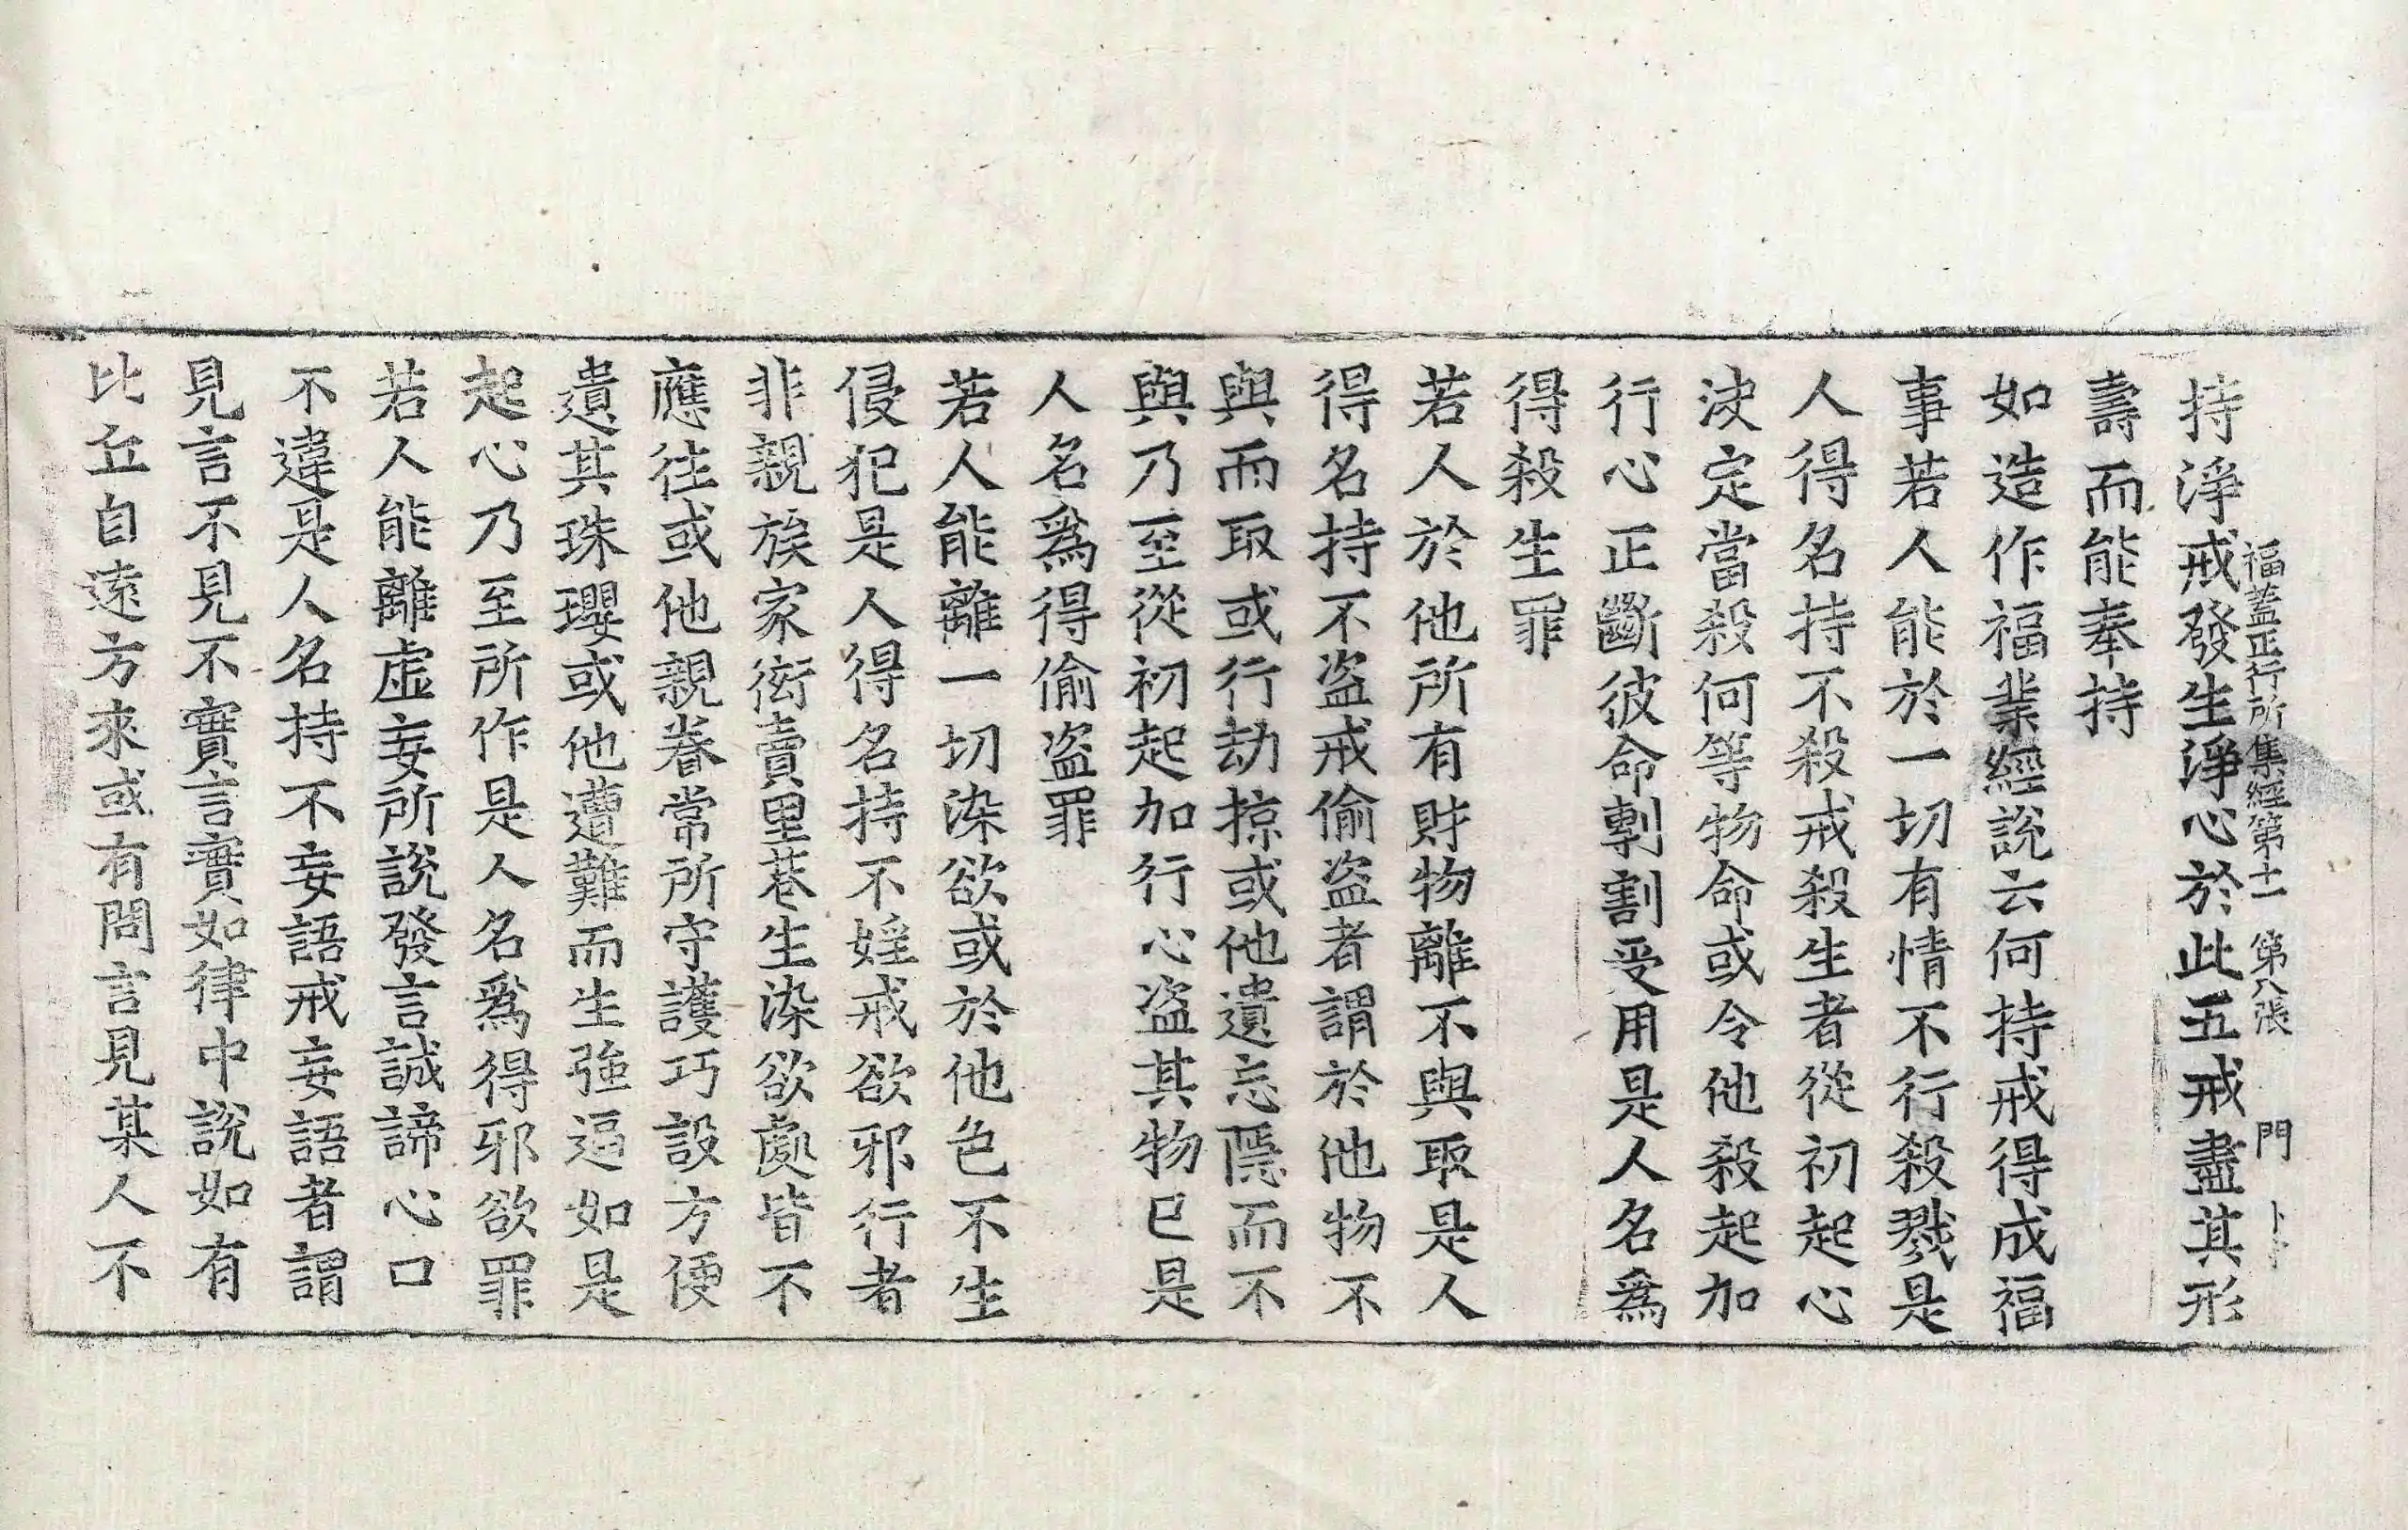 福蓋正行所集經第十一　第八張　門
持淨戒發生淨心於此五戒盡其形
壽而能奉持
如造作福業經說云何持戒得成福
事若人能於一切有情不行殺戮是
人得名持不殺戒殺生者從初起心
决定當殺何等物命或令他殺起加
行心正斷彼命剸割受用是人名爲
得殺生罪
若人於他所有財物離不與取是人
得名持不盜戒偷盜者謂於他物不
與而取或行劫掠或他遺忘隱而不
與乃至從初起加行心盜其物已是
人名爲得偷盜罪
若人能離一切染欲或於他色不生
侵犯是人得名持不婬戒欲邪行者
非親族家衒賣里巷生染欲處皆不
應往或他親眷常所守護巧設方便
遺其珠瓔或他遭難而生強逼如是
起心乃至所作是人名爲得邪欲罪
若人能離虛妄所說發言誠諦心口
不違是人名持不妄語戒妄語者謂
見言不見不實言實如律中說如有
比丘自遠方來或有問言見某人不